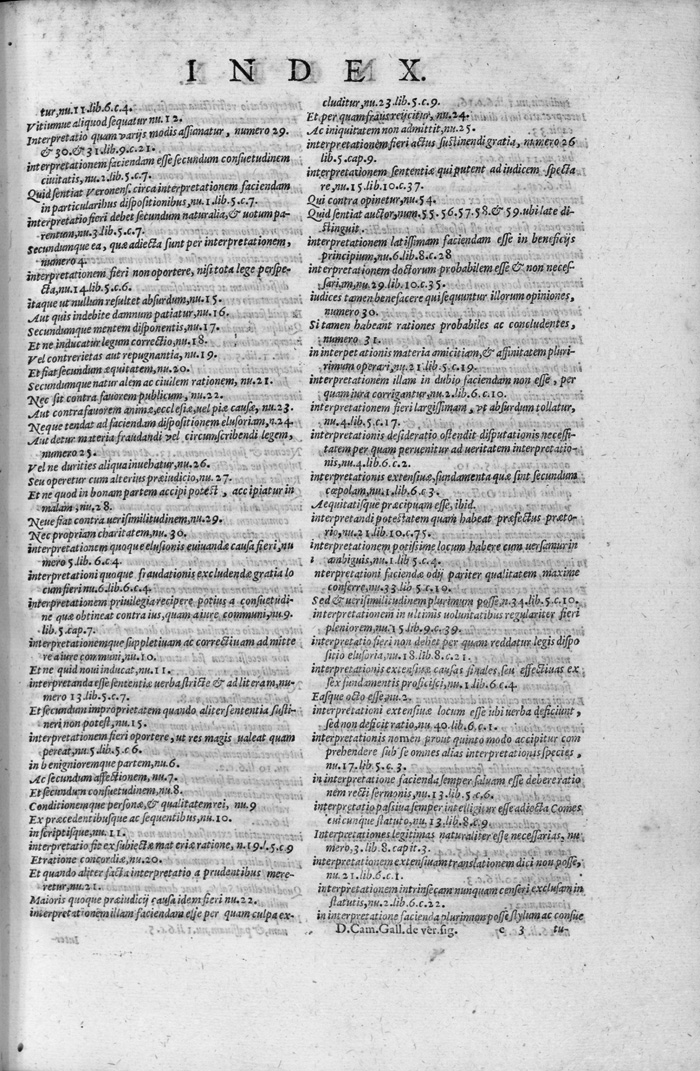 INDEX.
tur, nu. 11. lib. 6. c. 4.
Vitiumue aliquod sequatur nu. 12.
Interpretatio quam varijs modis assimatur, numero 29.
& 30. & 31. lib. 9. c. 21.
interpretationem faciendam esse secundum consuetudinem
ciuitatis, nu. 2. lib. 5. c. 7.
Quid sentiat Veronens. circa interpretationem faciendam
in particularibus dispositionibus, nu. 1. lib. 5. c. 7.
interpretatio fieri debet secundum naturalia, & uotum pa-
rentum, nu. 3. lib. 5. c. 7.
Secundumque ea, quæ adiecta sunt per interpretationem,
numero 4.
interpretationem fieri non oportere, nisi tota lege perspe-
cta, nu. 14. lib. 5. c. 6.
itaque ut nullum resultet absurdum, nu. 15.
Aut quis indebite damnum patiatur, nu. 16.
Secundumque mentem disponentis, nu. 17.
Et ne inducatur legum correctio, nu. 18.
Vel contrerietas aut repugnantia, nu. 19.
Et fiat secundum æquitatem, nu. 20.
Secundumque naturalem ac ciuilem rationem, nu. 21.
Nec sit contra fauorem publicum, nu. 22.
Aut contra fauorem animæ, ecclesiæ, uel piæ causæ, nu. 23.
Neque tendat ad faciendam dispositionem elusoriam, n. 24.
Aut detur materia fraudandi vel circumscribendi legem,
numero 25.
Vel ne durities aliqua inuehatur, nu. 26.
Seu operetur cum alterius præiudicio, nu. 27.
Et ne quod in bonam partem accipi potest, accipiatur in
malam, nu. 28.
Neue fiat contra uerisimilitudinem, nu. 29.
Nec propriam charitatem, nu. 30.
interpretationem quoque elusionis euitandæ causa fieri, nu
mero 5. lib. 6. c. 4.
interpretationi quoque fraudationis excludendæ gratia lo
cum fieri nu. 6. lib. 6. c. 4.
interpretationem priuilegia recipere potius a consuetudi-
ne quæ obtineat contra ius, quam a iure communi, nu. 9.
lib. 5. cap. 7.
interpretationemque suppletiuam ac correctiuam admitte
re a iure communi, nu. 10.
Et ne quid noui inducat, nu. 11.
interpretanda esse sententiæ uerba stricte & ad literam, nu-
mero 13. lib. 5. c. 7.
Et secundum improprietatem quando aliter sententia susti-
neri non potest, nu. 15.
interpretationem fieri oportere, ut res magis ualeat quam
pereat, nu. 5. lib. 5. c. 6.
in benignioremque partem, nu. 6.
Ac secundum affectionem, nu. 7.
Et secundum consuetudinem, nu. 8.
Conditionemque personæ, & qualitatem rei, nu. 9
Ex præcedentibusque ac sequentibus, nu. 10.
in scriptisque, nu. 11.
interpretatio fie ex subiectæ materiæ ratione, n. 19. l. 5. c. 9
Et ratione concordiæ, nu. 20.
Et quando aliter facta interpretatio a prudentibus mere-
retur, nu. 21.
Maioris quoque præiudicij causa idem fieri nu. 22.
interpretationem illam faciendam esse per quam culpa ex-
cluditur, nu. 23. lib. 5. c. 9.
Et per quam fraus reijcitio, nu. 24.
Ac iniquitatem non admittit, nu. 25.
interpretationem fieri actus sustinendi gratia, numero 26
lib. 5. cap. 9.
interpretationem sententiæ qui putent ad iudicem specta
re, nu. 15. lib. 10. c. 37.
Qui contra opinetur, nu. 54.
Quid sentiat auctor, num. 55. 56. 57. 58. & 59. ubi late di-
stinguit.
interpretationem latissimam faciendam esse in beneficijs
principium, nu. 6. lib. 8. c. 28
interpretationem doctorum probabilem esse & non neces-
sariam, nu. 29. lib. 10. c. 35.
iudices tamen benefacere qui sequuntur illorum opiniones,
numero 30.
Si tamen habeant rationes probabiles ac concludentes,
numero 31.
in interpetationis materia amicitiam, & affinitatem pluri-
rimum operari, nu. 21. lib. 5. c. 19.
interpretationem illam in dubio faciendam non esse, per
quam iura corrigantur, nu. 2. lib. 6. c. 10.
interpretationem fieri largissimam, vt absurdum tollatur,
nu. 4. lib. 5. c. 17.
interpretationis desideratio ostendit disputationis necessi-
tatem per quam peruenitur ad ueritatem interpretatio-
nis, nu. 4. lib. 6. c. 2.
interpretationis extensiuæ, fundamenta quæ sint secundum
cæpolam, nu. 1. lib. 6. c. 3.
Aequitatisque præcipuam esse, ibid.
interpretandi potestatem quam habeat præfectus præto-
rio, nu. 21. lib. 10. c. 75.
interpretationem potissime locum habere cum uersamur in
ambiguis, nu. 1. lib. 5. c. 4.
interpretationi faciendæ odij pariter qualitatem maxime
conferre, nu. 33. lib. 5. c. 19.
Sed & uerisimilitudinem plurimum posse, n. 34. lib. 5. c. 10.
interpretationem in ultimis uoluntatibus regulariter fieri
pleniorem, nu. 15. lib. 9. c. 39.
interpretatio fieri non debet per quam reddatur legis dispo
sitio elusoria, nu. 18. lib. 8. c. 21.
interpretationis extensiuæ causas finales, seu effectiuas ex
sex fundamentis proficisci, nu. 1. lib. 6. c. 4.
Easque octo esse, nu. 2.
interpretationi extensiuæ locum esse ubi uerba deficiunt,
sed non deficit ratio, nu. 40. lib. 6. c. 1.
interpretationis nomen prout quinto modo accipitur com
prehendere sub se omnes alias interpretationis species,
nu. 17. lib. 5. c. 3.
in interpretatione facienda semper saluam esse debere ratio
nem recti sermonis, nu. 13. lib. 5. c. 6.
interpretatio passiua semper intelligitur esse adiecta
cuicunque statuto, nu. 13. lib. 8. c. 9
Interpretationes legitimas naturaliter esse necessarias, nu
mero, 3. lib. 8. capit. 3.
interpretationem extensiuam translationem dici non posse,
nu. 21. lib. 6. c. 1.
interpretationem intrinsecam nunquam censeri exclusam in
statutis, nu. 2. lib. 6. c. 22.
in interpretatione facienda plurimum posse stylum ac consue
D. Cam. Gall. de ver. sig. c 3 tu-